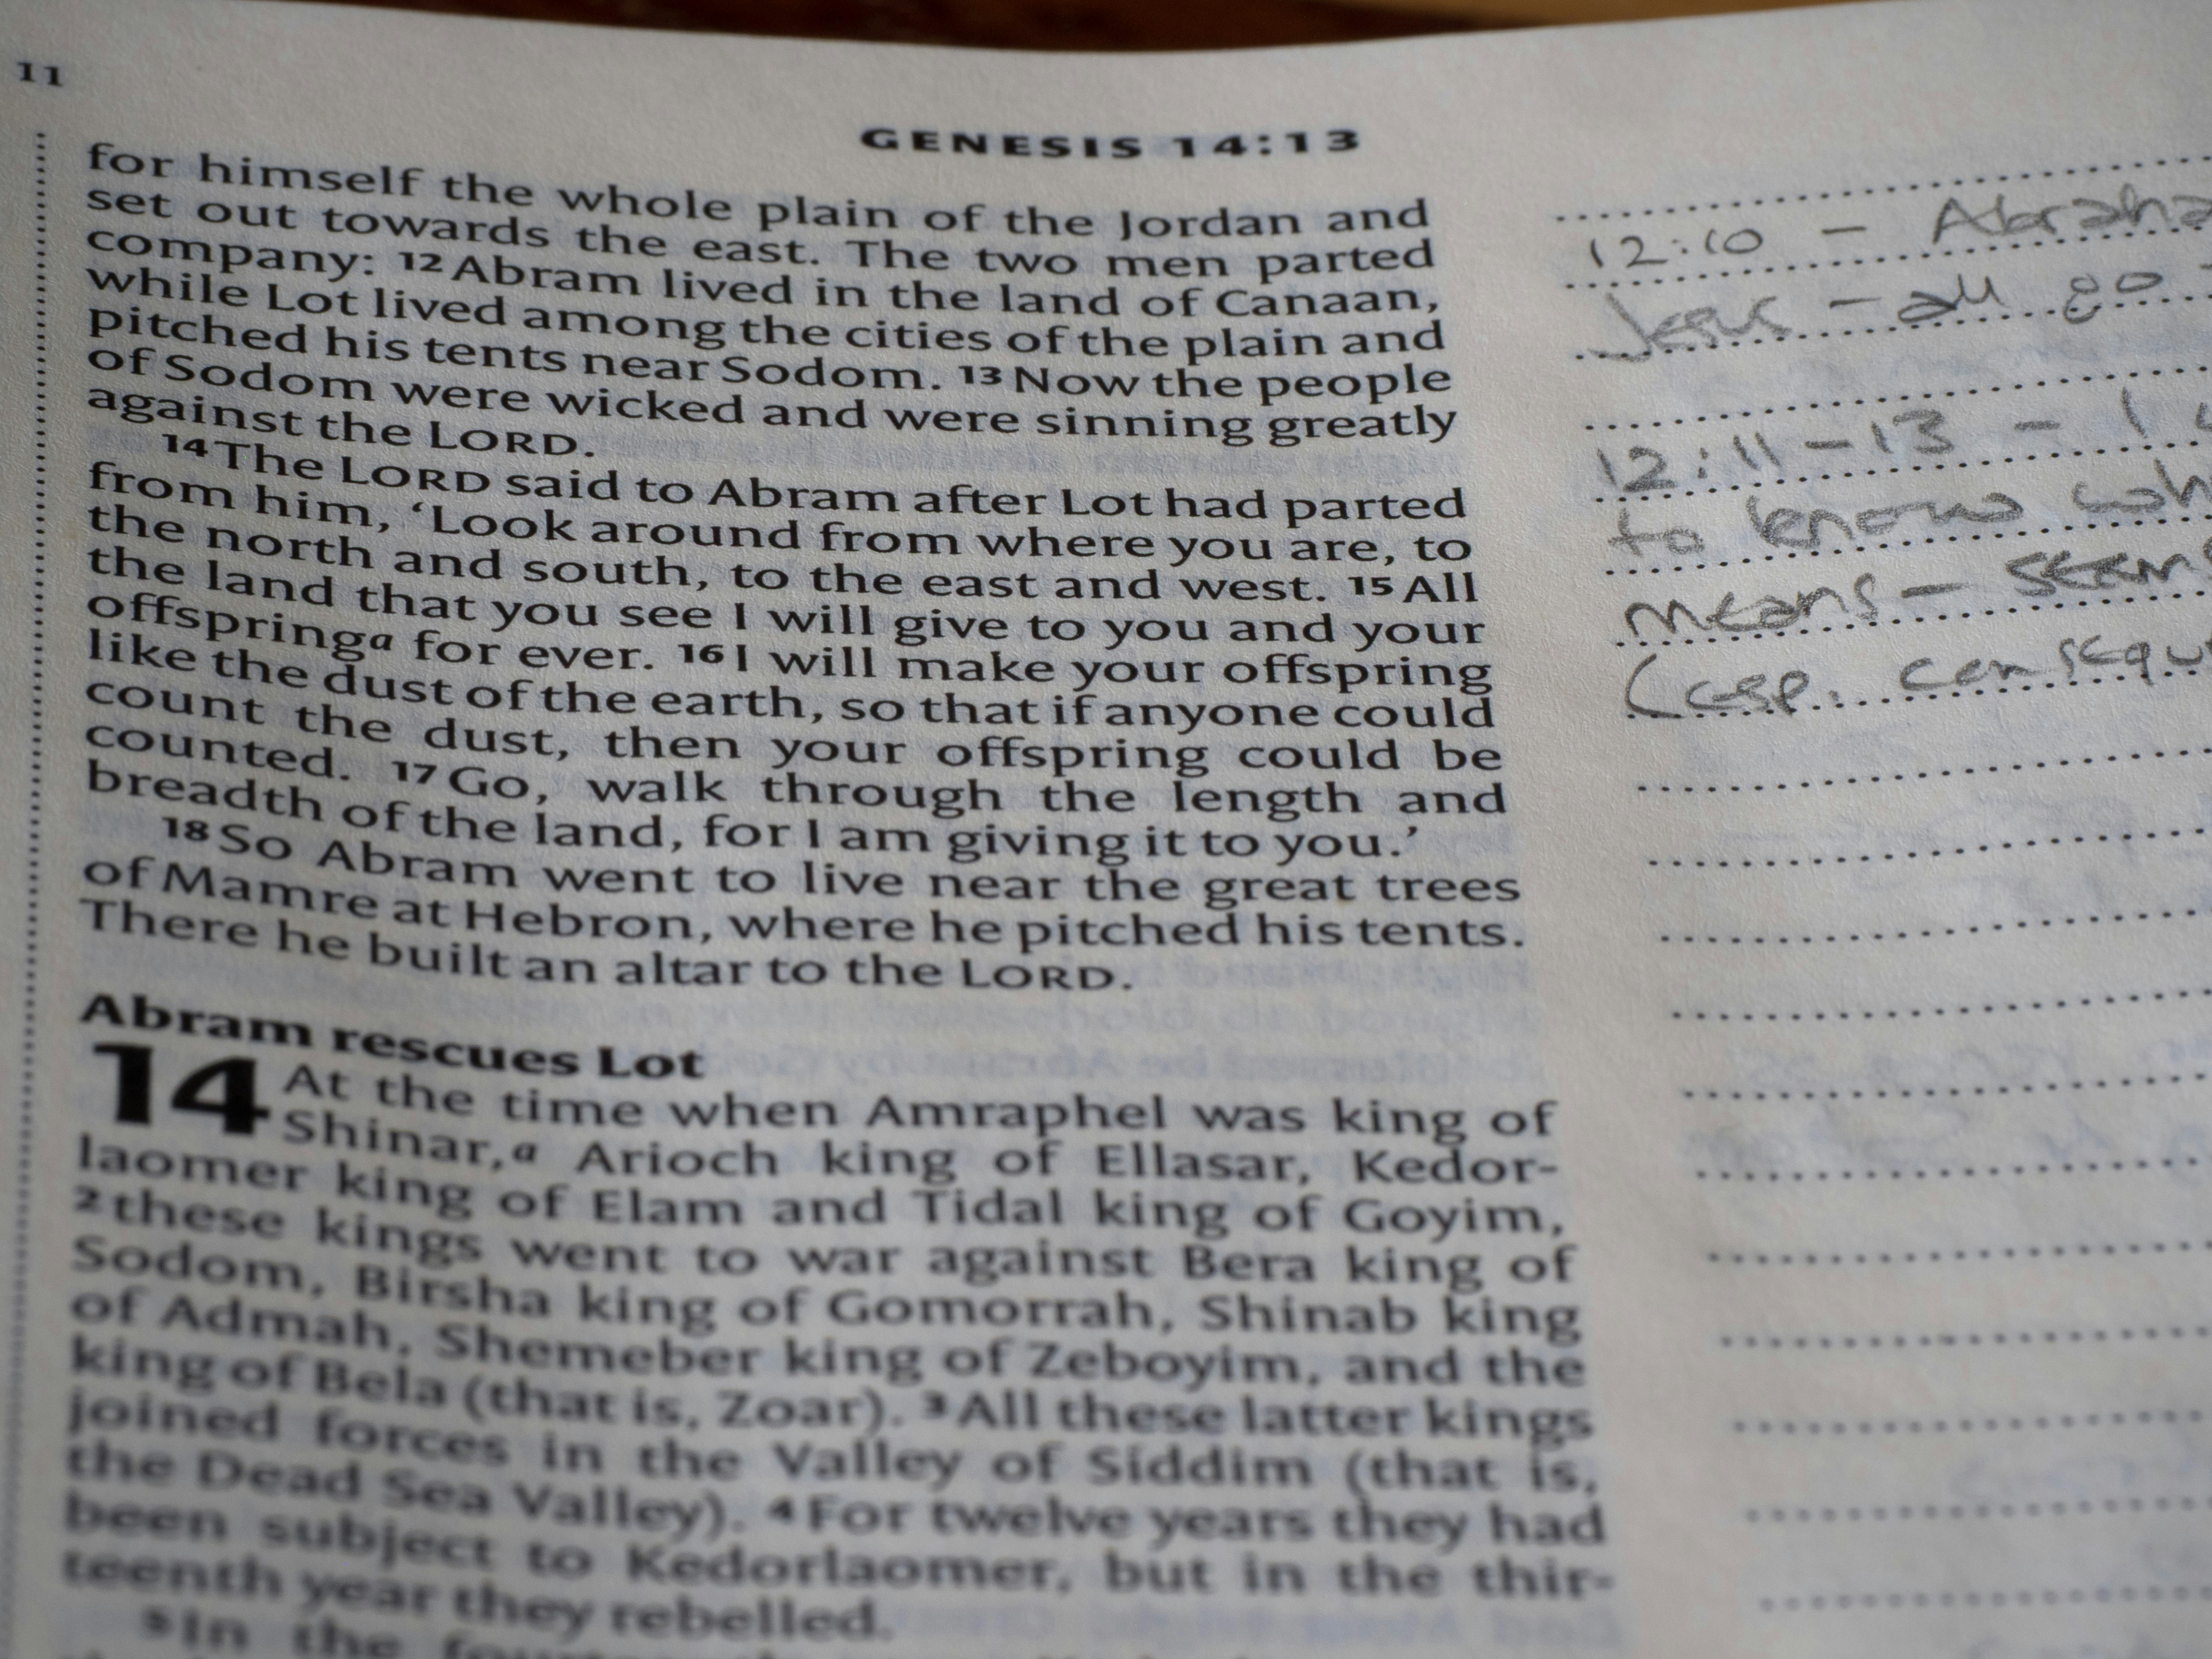 11
GENESIS 14:13
for himself the whole plain of the Jordan and
set out towards the east. The two men parted
company: 12 Abram lived in the land of Canaan,
while Lot lived among the cities of the plain and
pitched his tents near Sodom. 13 Now the people
of Sodom were wicked and were sinning greatly
against the LORD.
14 The LORD said to Abram after Lot had parted
from him, ‘Look around from where you are, to
the north and south, to the east and west. 15 All
the land that you see I will give to you and your
offspringa for ever. 16 I will make your offspring
like the dust of the earth, so that if anyone could
count the dust, then your offspring could be
counted. 17 Go, walk through the length and
breadth of the land, for I am giving it to you.’
18 So Abram went to live near the great trees
of Mamre at Hebron, where he pitched his tents.
There he built an altar to the LORD.
Abram rescues Lot
14 At the time when Amraphel was king of
Shinar,a Arioch king of Ellasar, Kedor-
laomer king of Elam and Tidal king of Goyim,
2 these kings went to war against Bera king of
Sodom, Birsha king of Gomorrah, Shinab king
of Admah, Shemeber king of Zeboyim, and the
king of Bela (that is, Zoar). 3 All these latter kings
joined forces in the Valley of Siddim (that is,
the Dead Sea Valley). 4 For twelve years they had
been subject to Kedorlaomer, but in the thir-
teenth year they rebelled.
5 In the
12:10 – Abraha
Jesus – all go
12:11–13 – I
to know wh
means – seems
(esp. consequ